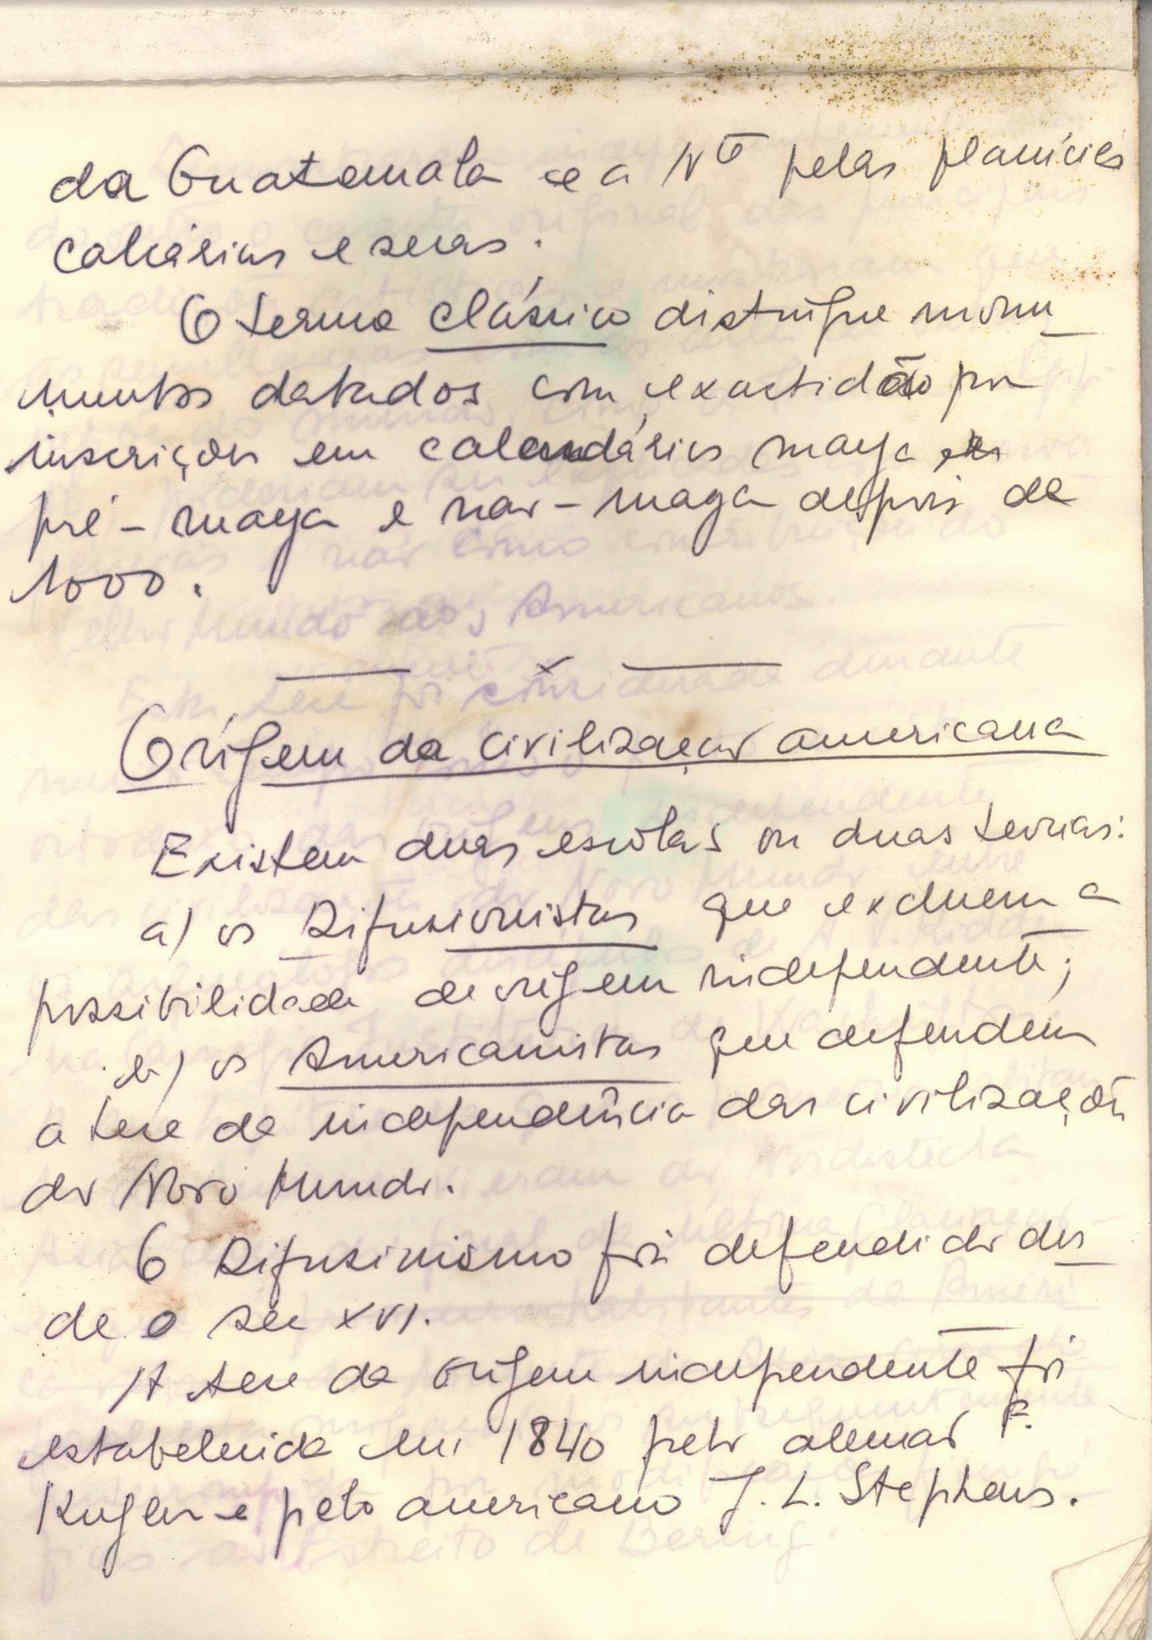 da Guatemala e a Nte pelas planícies
calcárias e secas.
O termo clássico distingue monu_
mentos datados com exactidão por
inscrições em calendários maya
pré-maya e não-maya depois de
1000.
— x —
Orígem da civilização americana
Existem duas escolas ou duas teorias:
a) os Difusionistas que excluem a
possibilidade de orígem independente;
b) os Americanistas que defendem
a tese da independência das civilizações
do Novo Mundo.
O Difusinismo foi defendido des_
de o séc XVI.
A tese da orígem independente foi
estabelecida em 1840 pelo alemão F.
Kugler e pelo americano J. L. Stephens.